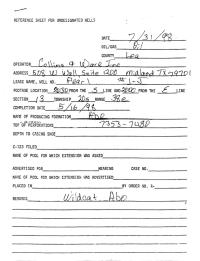 REFERENCE SHEET FOR UNDESIGNATED WELLS
DATE 7/31/98
OIL/GAS Oil
COUNTY Lea
OPERATOR Collins & Ware Inc
ADDRESS 508 W Wall, Suite 1200 Midland TX 79701
LEASE NAME, WELL NO. Pearl #1-J
FOOTAGE LOCATION: FROM THE S LINE AND FROM THE E LINE
SECTION 13 TOWNSHIP 20s RANGE
COMPLETION DATE 5/16/98
NAME OF PRODUCING FORMATION Abo
TOP OF PERFORATIONS 7353-7480
DEPTH TO CASING SHOE
C-123 FILED
NAME OF POOL FOR WHICH EXTENSION WAS ASKED
ADVERTISED FOR HEARING CASE NO.
NAME OF POOL FOR WHICH EXTENSION WAS ADVERTISED
PLACED IN BY ORDER NO. R-
REMARKS Wildcat Abo